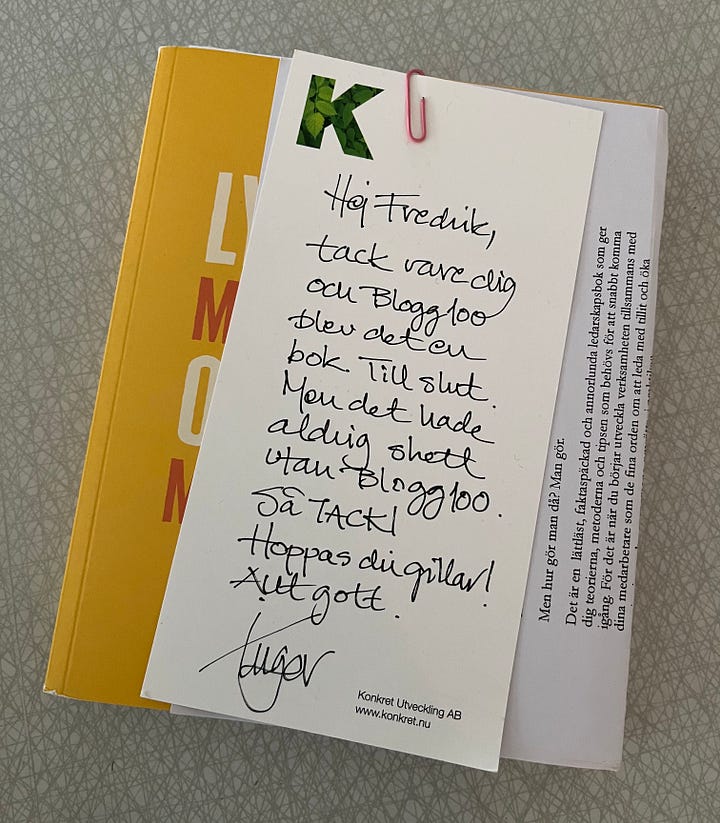 K
Hej Fredrik,
tack vare dig
och Blogg100
blev det en
bok. Till slut.
Men det hade
aldrig skett
utan Blogg100.
Så TACK!
Hoppas du gillar!
Allt gott.
Konkret Utveckling AB
www.konkret.nu
LY
M
O
M
Men hur gör man då? Man gör.
Det är en lättläst, faktaspäckad och annorlunda ledarskapsbok som ger
dig teorierna, metoderna och tipsen som behövs för att snabbt komma
igång. För det är när du börjar utveckla verksamheten tillsammans med
dina medarbetare som de fina orden om att leda med tillit och öka